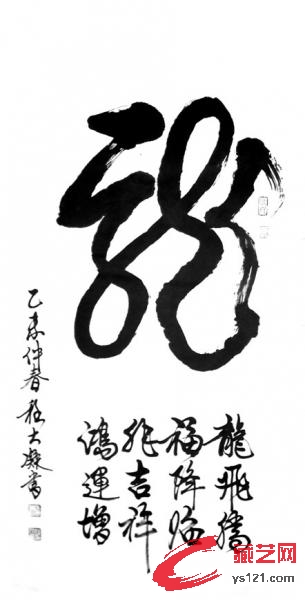 龍
龍飛騰
福降臨
吉祥
鴻運增
乙未仲春 程大書
藏艺网
ys121.com